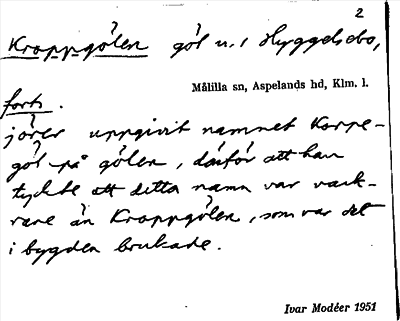 2
Kroppgölen göl n.i Hyggelsebo,
Målilla sn, Aspelands hd, Klm. l.
forts.
jörer uppgivit namnet Korpe-
göl på gölen, därför att han
tyckte att detta namn var vack-
rare än Kroppgölen, som var det
i bygden brukade.
Ivar Modéer 1951